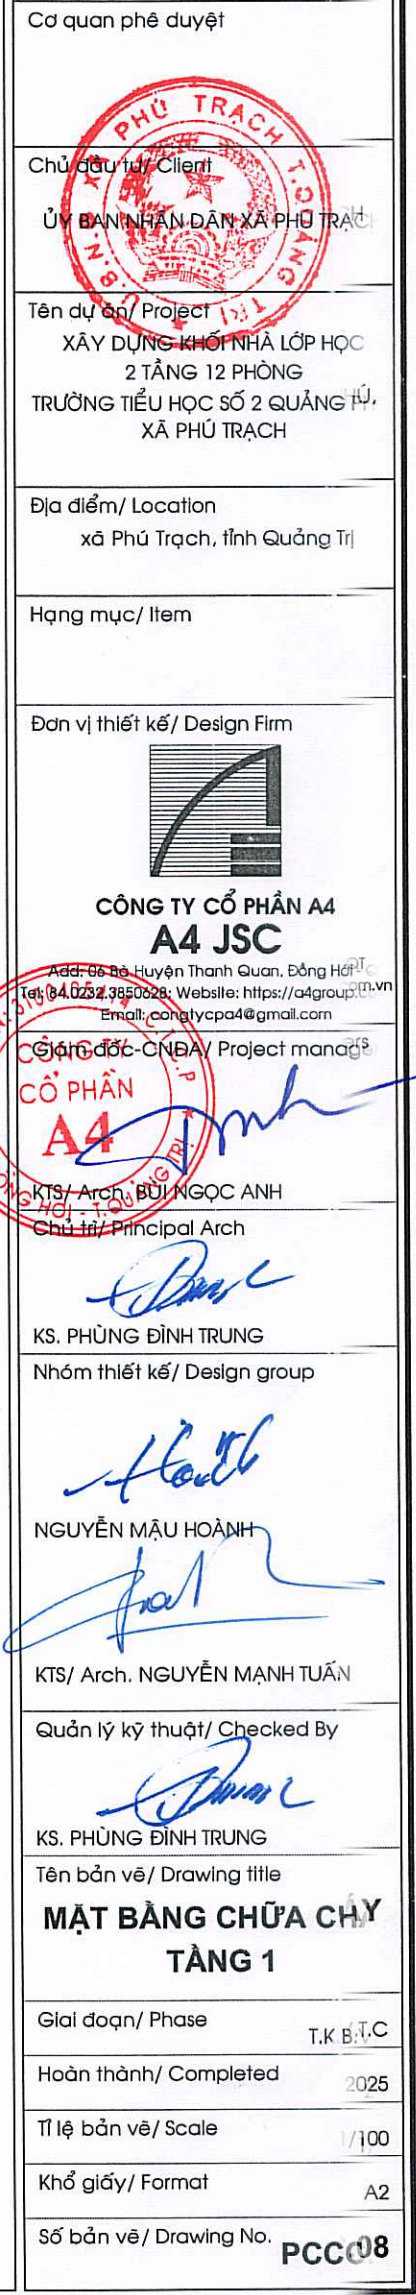 Cơ quan phê duyệt
PHÚ TRẠCH T.QUẢNG TRỊ
U.B.N.D XÃ
Chủ đầu tư/ Client
ỦY BAN NHÂN DÂN XÃ PHÚ TRẠCH
Tên dự án/ Project
XÂY DỰNG KHỐI NHÀ LỚP HỌC
2 TẦNG 12 PHÒNG
TRƯỜNG TIỂU HỌC SỐ 2 QUẢNG PHÚ,
XÃ PHÚ TRẠCH
Địa điểm/ Location
xã Phú Trạch, tỉnh Quảng Trị
Hạng mục/ Item
Đơn vị thiết kế/ Design Firm
CÔNG TY CỔ PHẦN A4
A4 JSC
Add: 06 Bà Huyện Thanh Quan, Đồng Hới -
Tel: 84.0232.3850628; Website: https://a4group.com.vn
Email: congtycpa4@gmail.com
Giám đốc-CNĐA/ Project managers
C.T.C.P
CÔNG TY
CỔ PHẦN
A4
HỚI - T.QUẢNG TRỊ
KTS/ Arch. BÙI NGỌC ANH
Chủ trì/ Principal Arch
KS. PHÙNG ĐÌNH TRUNG
Nhóm thiết kế/ Design group
NGUYỄN MẬU HOÀNH
KTS/ Arch. NGUYỄN MẠNH TUẤN
Quản lý kỹ thuật/ Checked By
KS. PHÙNG ĐÌNH TRUNG
Tên bản vẽ/ Drawing title
MẶT BẰNG CHỮA CHÁY
TẦNG 1
Giai đoạn/ Phase
T.K B.V T.C
Hoàn thành/ Completed
2025
Tỉ lệ bản vẽ/ Scale
1/100
Khổ giấy/ Format
A2
Số bản vẽ/ Drawing No.
PCCC 08